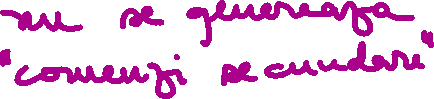 nu se genereaza
"comenzi secundare"